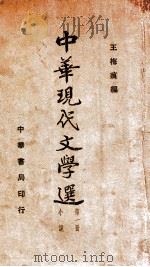 王梅痕編
中華現代文學選
小說
中華書局印行